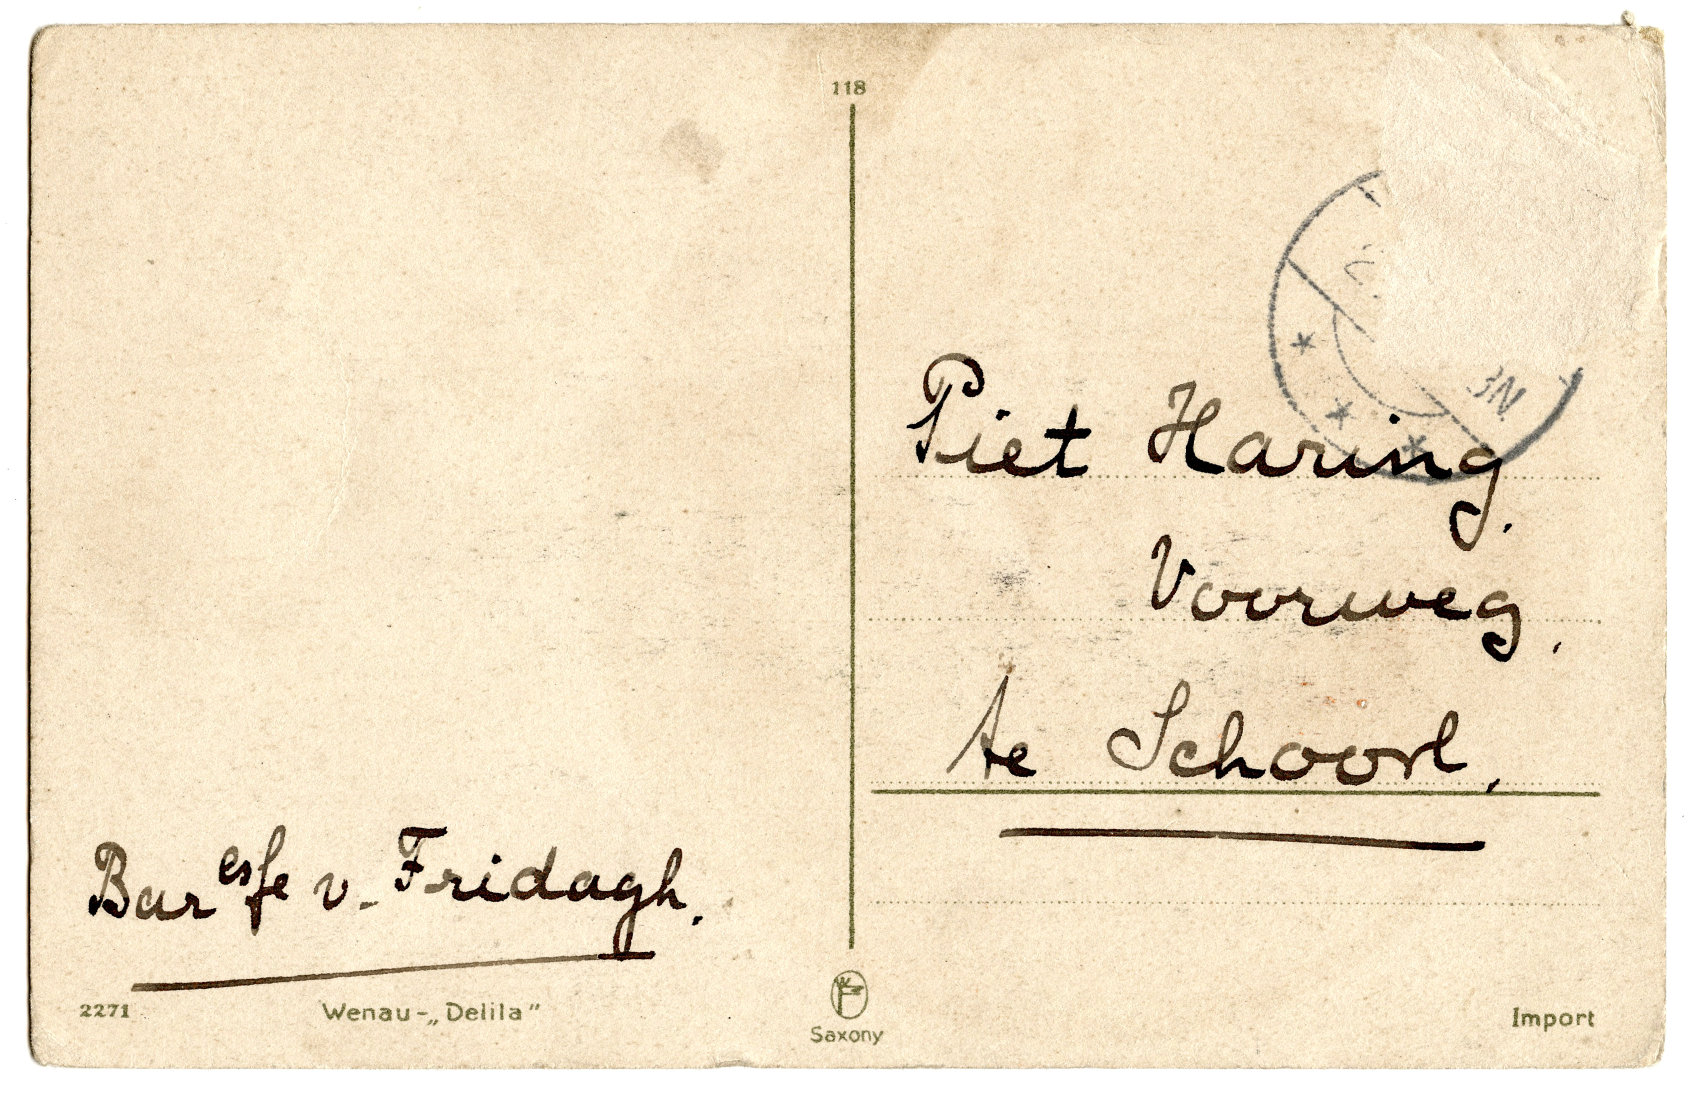 118
BN
Piet Haring.
Voorweg,
te Schoorl,
Bar esse v. Fridagh.
2271
Wenau-„Delila"
Saxony
Import